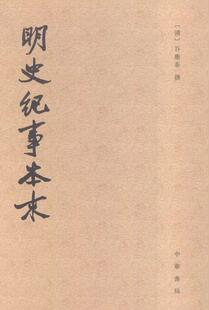 明史纪事本末
〔清〕谷應泰 撰
中華書局